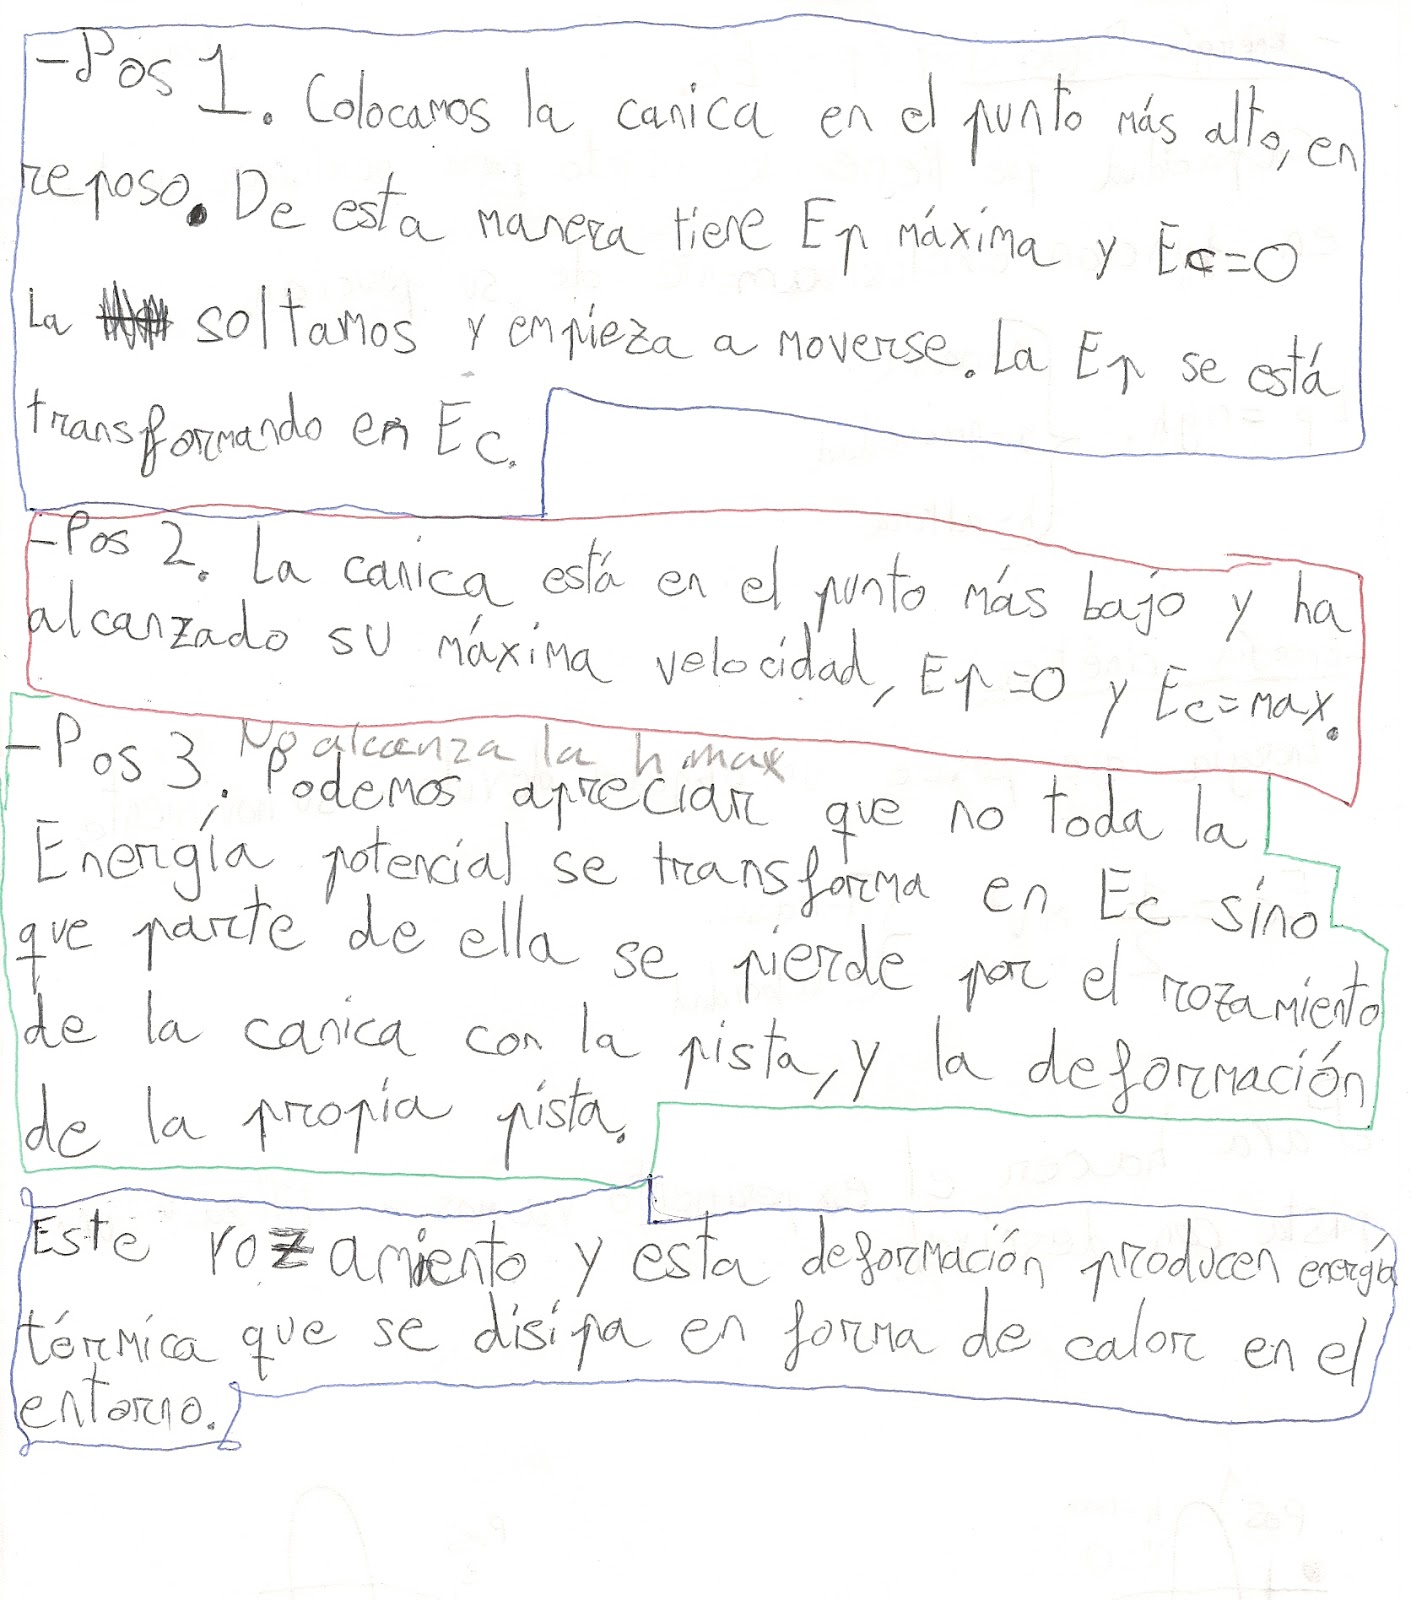 -Pos 1. Colocamos la canica en el punto más alto, en
reposo. De esta manera tiene Ep máxima y Ec=0
La soltamos y empieza a moverse. La Ep se está
transformando en Ec.
-Pos 2. La canica está en el punto más bajo y ha
alcanzado su máxima velocidad, Ep=0 y Ec=max.
-Pos 3. No alcanza la h max
Podemos apreciar que no toda la
Energía potencial se transforma en Ec sino
que parte de ella se pierde por el rozamiento
de la canica con la pista, y la deformación
de la propia pista.
Este rozamiento y esta deformación producen energía
térmica que se disipa en forma de calor en el
entorno.